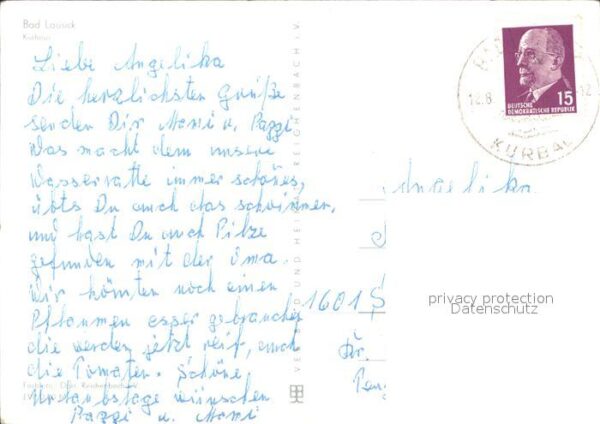 Bad Lausick
Kurhaus
Liebe Angelika
Die herzlichsten Grüße
senden Dir Mami u. Pappi
Was macht denn unsere
Wasserratte immer schönes,
übts Du auch das schwimmen,
und hast Du auch Pilze
gefunden mit der Oma.
Wir könnten noch einen
Pflaumen esser gebrauchen
die werden jetzt reif, auch
die Tomaten. Schöne
Urlaubstage wünschen
Pappi u. Mami
REICHENBACH i. V.
DEUTSCHE
DEMOKRATISCHE REPUBLIK
15
KURBA
Angelika
1601 S
Kr.
privacy protection
Datenschutz